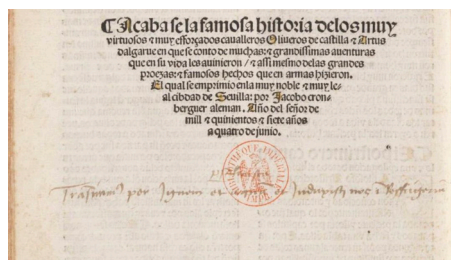 Acaba se la famosa historia delos muy
virtuosos ⁊ muy esforçados caualleros Oliueros de castilla ⁊ Artus
dalgarue en que se conto de muchas: ⁊ grandissimas auenturas
que en su vida les auinieron / ⁊ assi mesmo delas grandes
proezas: ⁊ famosos hechos que en armas hizieron.
El qual se emprimio enla muy noble ⁊ muy le-
al cibdad de Seuilla: por Jacobo cron-
berguer aleman. Año del señor de
mill ⁊ quinientos ⁊ siete años
a quatro de junio.
BIBLIOTHEQUE IMPERIALE
per Ignem et